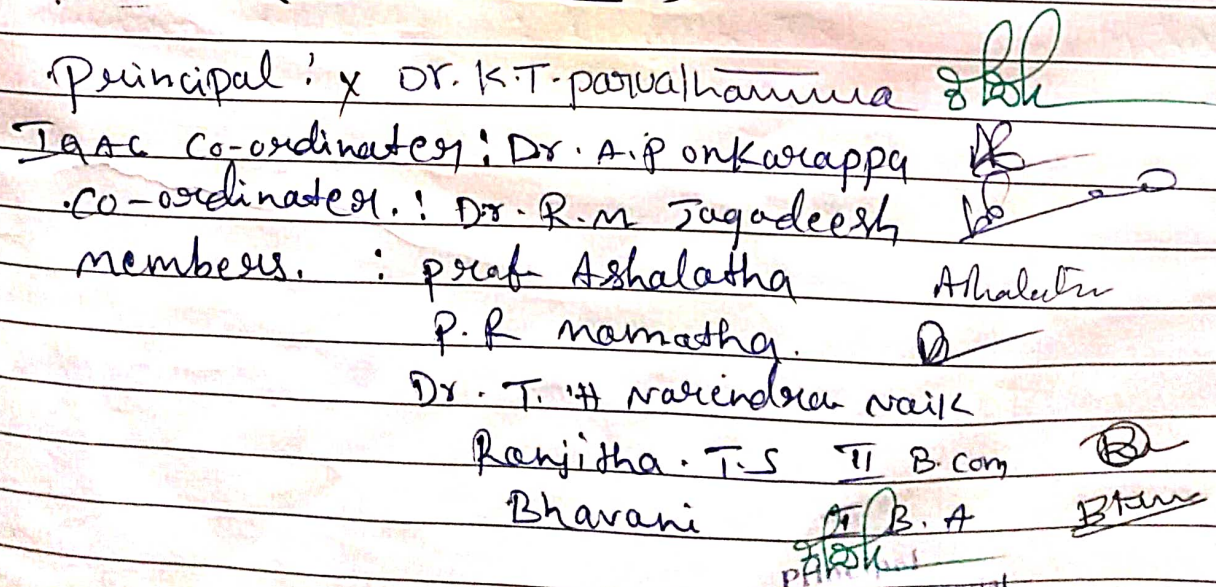 Principal : x Dr. K.T. parvathamma
IQAC Co-ordinater : Dr. A.P onkarappa
Co-ordinater. : Dr. R.M Jagadeesh
members. : prof Ashalatha Ashalatha
P.R Mamatha.
Dr. T. H Narendra Naik
Ranjitha. T.S II B.com
Bhavani B.A